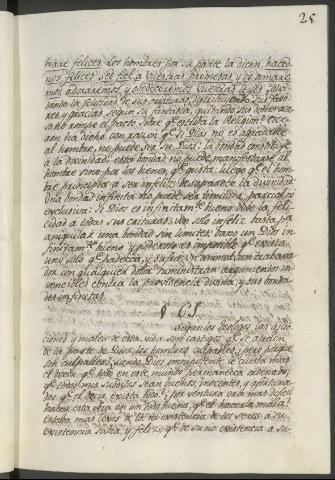 25
haré felices. Los hombres por su parte la dicen, haced-
nos felices sed fiel a vuestras promesas, y os amare-
mos, adoraremos, y obedeceremos vuestras leyes: olvi-
dando la felicidad de sus criaturas, distribuyendo sus favo-
res y gracias segun su fantasía, quitando sus
no rompe el pacto sobre qe. estriba la Religion? Cice-
ron ha dicho con razon qe. si Dios no es agradable
al hombre, no puede ser su Dios: la bondad constituye
a la divinidad: esta bondad no puede manifestarse al
hombre sino por los bienes, qe. gusta: luego qe. el hom-
bre principia a ser infeliz desaparece la divinidad.
Una bondad infinita no puede ser limitada, parcial, ni
exclusiva: Si Dios es infinitamte. bueno debe la feli-
cidad a todas sus criaturas: un solo infeliz basta pa.
aniquilar una bondad sin limites: bajo un Dios in-
finitamte. bueno y poderoso es imposible qe. exista
uno solo qe. padezca, y sufra: un animal, un trabaxa-
dor con qualquiera dolor suministran argumentos in-
vencibles contra la providencia divina, y sus bonda-
des infinitas.
§ 65.
Segun los teologos las aflic-
ciones y males de esta vida son castigos qe. se atraen
de la parte de Dios los hombres culpables; mas porque
son culpables? siendo Dios omnipotente le cuesta mas
el decir qe. todo en este mundo permanezca ordenado;
qe. todos mis subditos sean buenos, inocentes, y afortuna-
dos qe. el decir exista todo? ¿por ventura era mas dificil
hacer esta obra en un todo buena, qe. el hacerla mala?
estaba mas lejos de la no existencia de los seres a su
existencia sabia, y feliz qe. de su no existencia a su